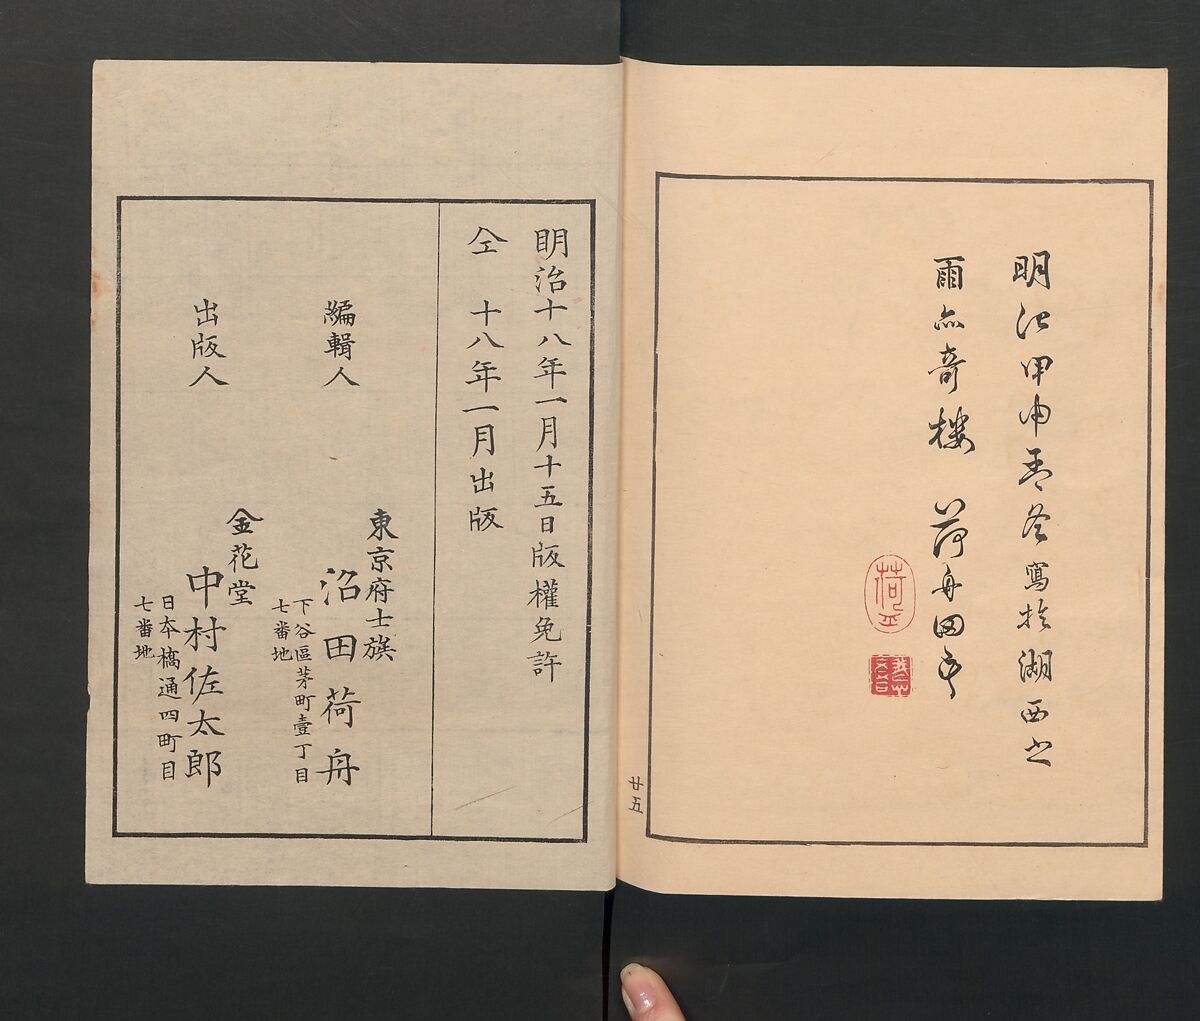 明治甲申孟冬寫於湖西之
雨亦奇樓 荷舟田
廿五
明治十八年一月十五日版權免許
仝 十八年一月出版
編輯人
東京府士族
沼田荷舟
下谷區茅町壹丁目
七番地
出版人
金花堂
中村佐太郎
日本橋通四町目
七番地